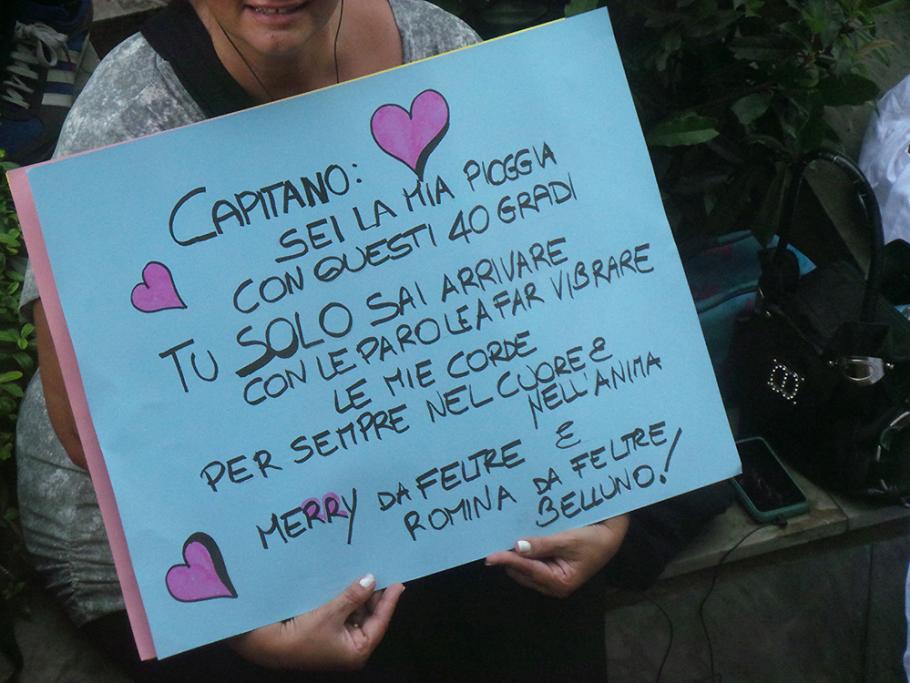 CAPITANO:
SEI LA MIA PIOGGIA
CON QUESTI 40 GRADI
TU SOLO SAI ARRIVARE
CON LE PAROLE A FAR VIBRARE
LE MIE CORDE
PER SEMPRE NEL CUORE E
NELL'ANIMA
MERRY DA FELTRE E
ROMINA DA FELTRE
BELLUNO!